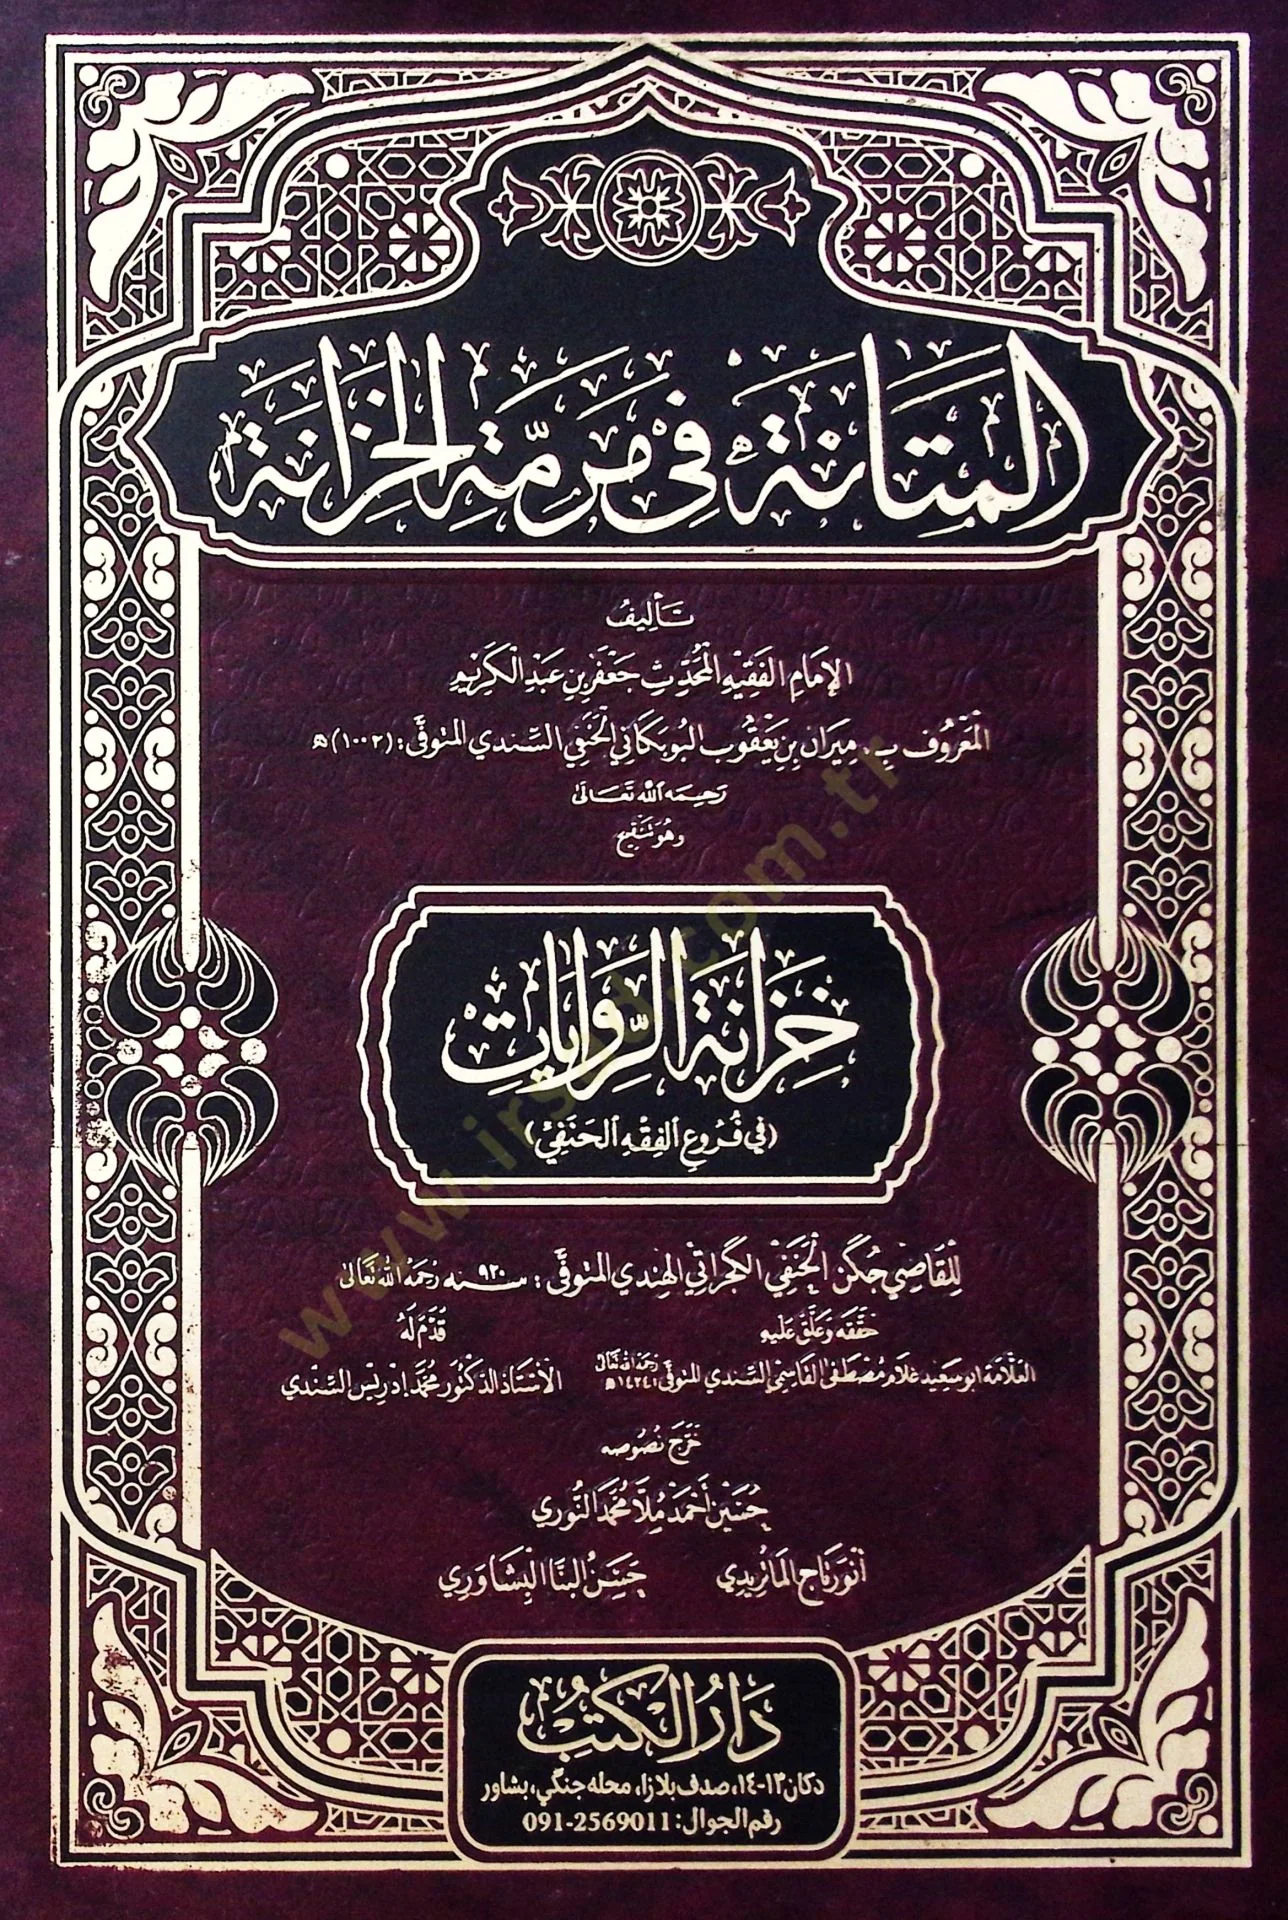 المَتَانَةُ فِي مَرَمَّةِ الخِزَانَةِ
تَأليفُ
الإمَامِ الفَقِيهِ المُحَدِّثِ جَعْفَرِ بنِ عَبْدِ الكَرِيْمِ
المَعْرُوف بِ. مِيرَان بن يَعْقُوب البُوبَكَانِي الحَنَفِي السِّندِي المتوفَّى: (١٠٠٢) هـ
رَحِمَه اللّٰه تَعَالَىٰ
وهو تَنْقِيح
خِزَانَةُ الرِّوَايَاتِ
(في فُرُوعِ الفِقْهِ الحَنَفِيّ)
لِلقَاضِي جُكَن الحَنَفِي الكجراتي الهِندي المتوفَّى: سنه ٩٢٠ رَحِمَهُ اللّٰهُ تَعَالىٰ
حَقَّقَه وَعَلَّقَ عَلَيه
قَدَّمَ لَهُ
العَلَّامَة ابو سَعِيد غلَام مُصْطَفىٰ القَاسِمِي السِّندِي المتوفى ١٤٢٤هـ رحمه اللّٰه تعالىٰ
الأسْتَاذ الدكتُور مُحَمَّد ادْرِيْس السِّنْدِي
خَرَّجَ نُصُوصه
حُسَيْن أَحْمَد مُلَّا مُحَمَّد النُّورِي
أنْوَر تَاج المَاتُرِيْدِي
حَسَنُ البَنَّا البِشَاوَرِي
دَارُ الكتب
دكان ١٣-١٤، صدف بلازا، محله جنگي، بشاور
رقم الجوال: 091-2569011
www.irsad.com.tr